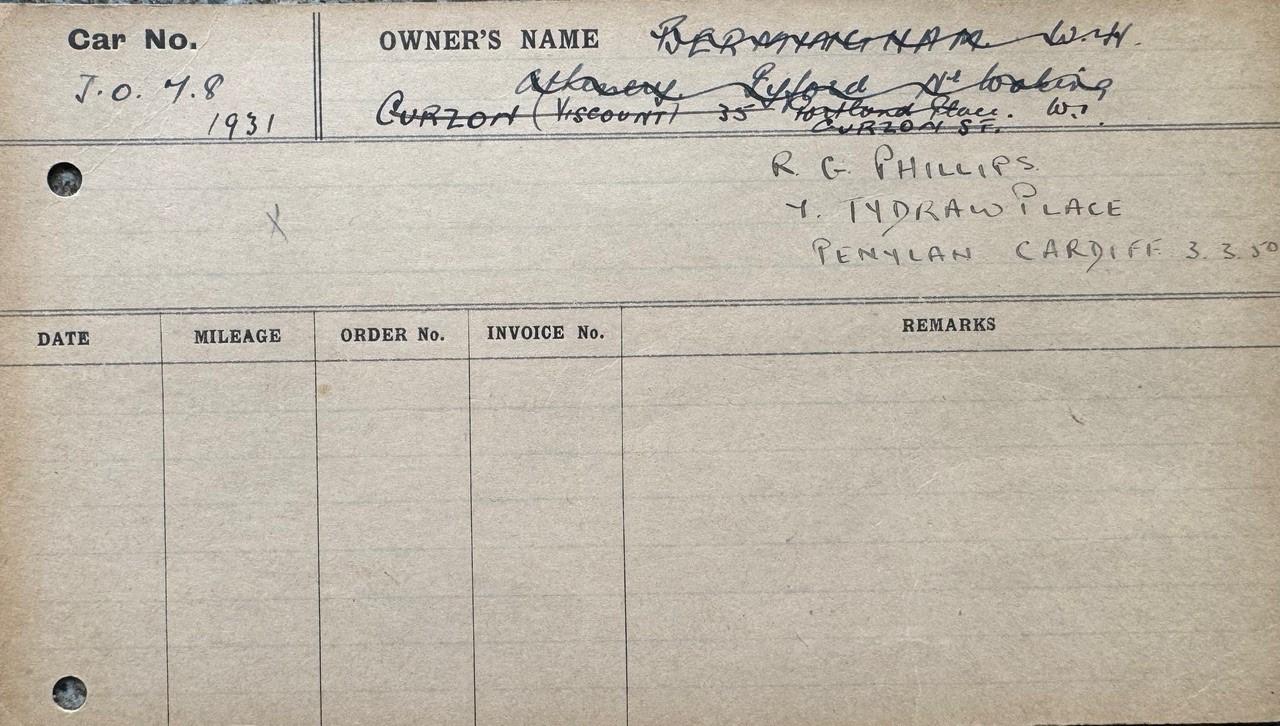 Car No.
OWNER'S NAME
BERMINGHAM W.H.
J.O. 78
Pyford Nr Woking
1931
CURZON (VISCOUNT) 35 Portland Place. W.1.
CURZON ST.
R. G. PHILLIPS.
7. TYDRAW PLACE
PENYLAN CARDIFF 3.3.50
X
DATE MILEAGE ORDER No. INVOICE No. REMARKS